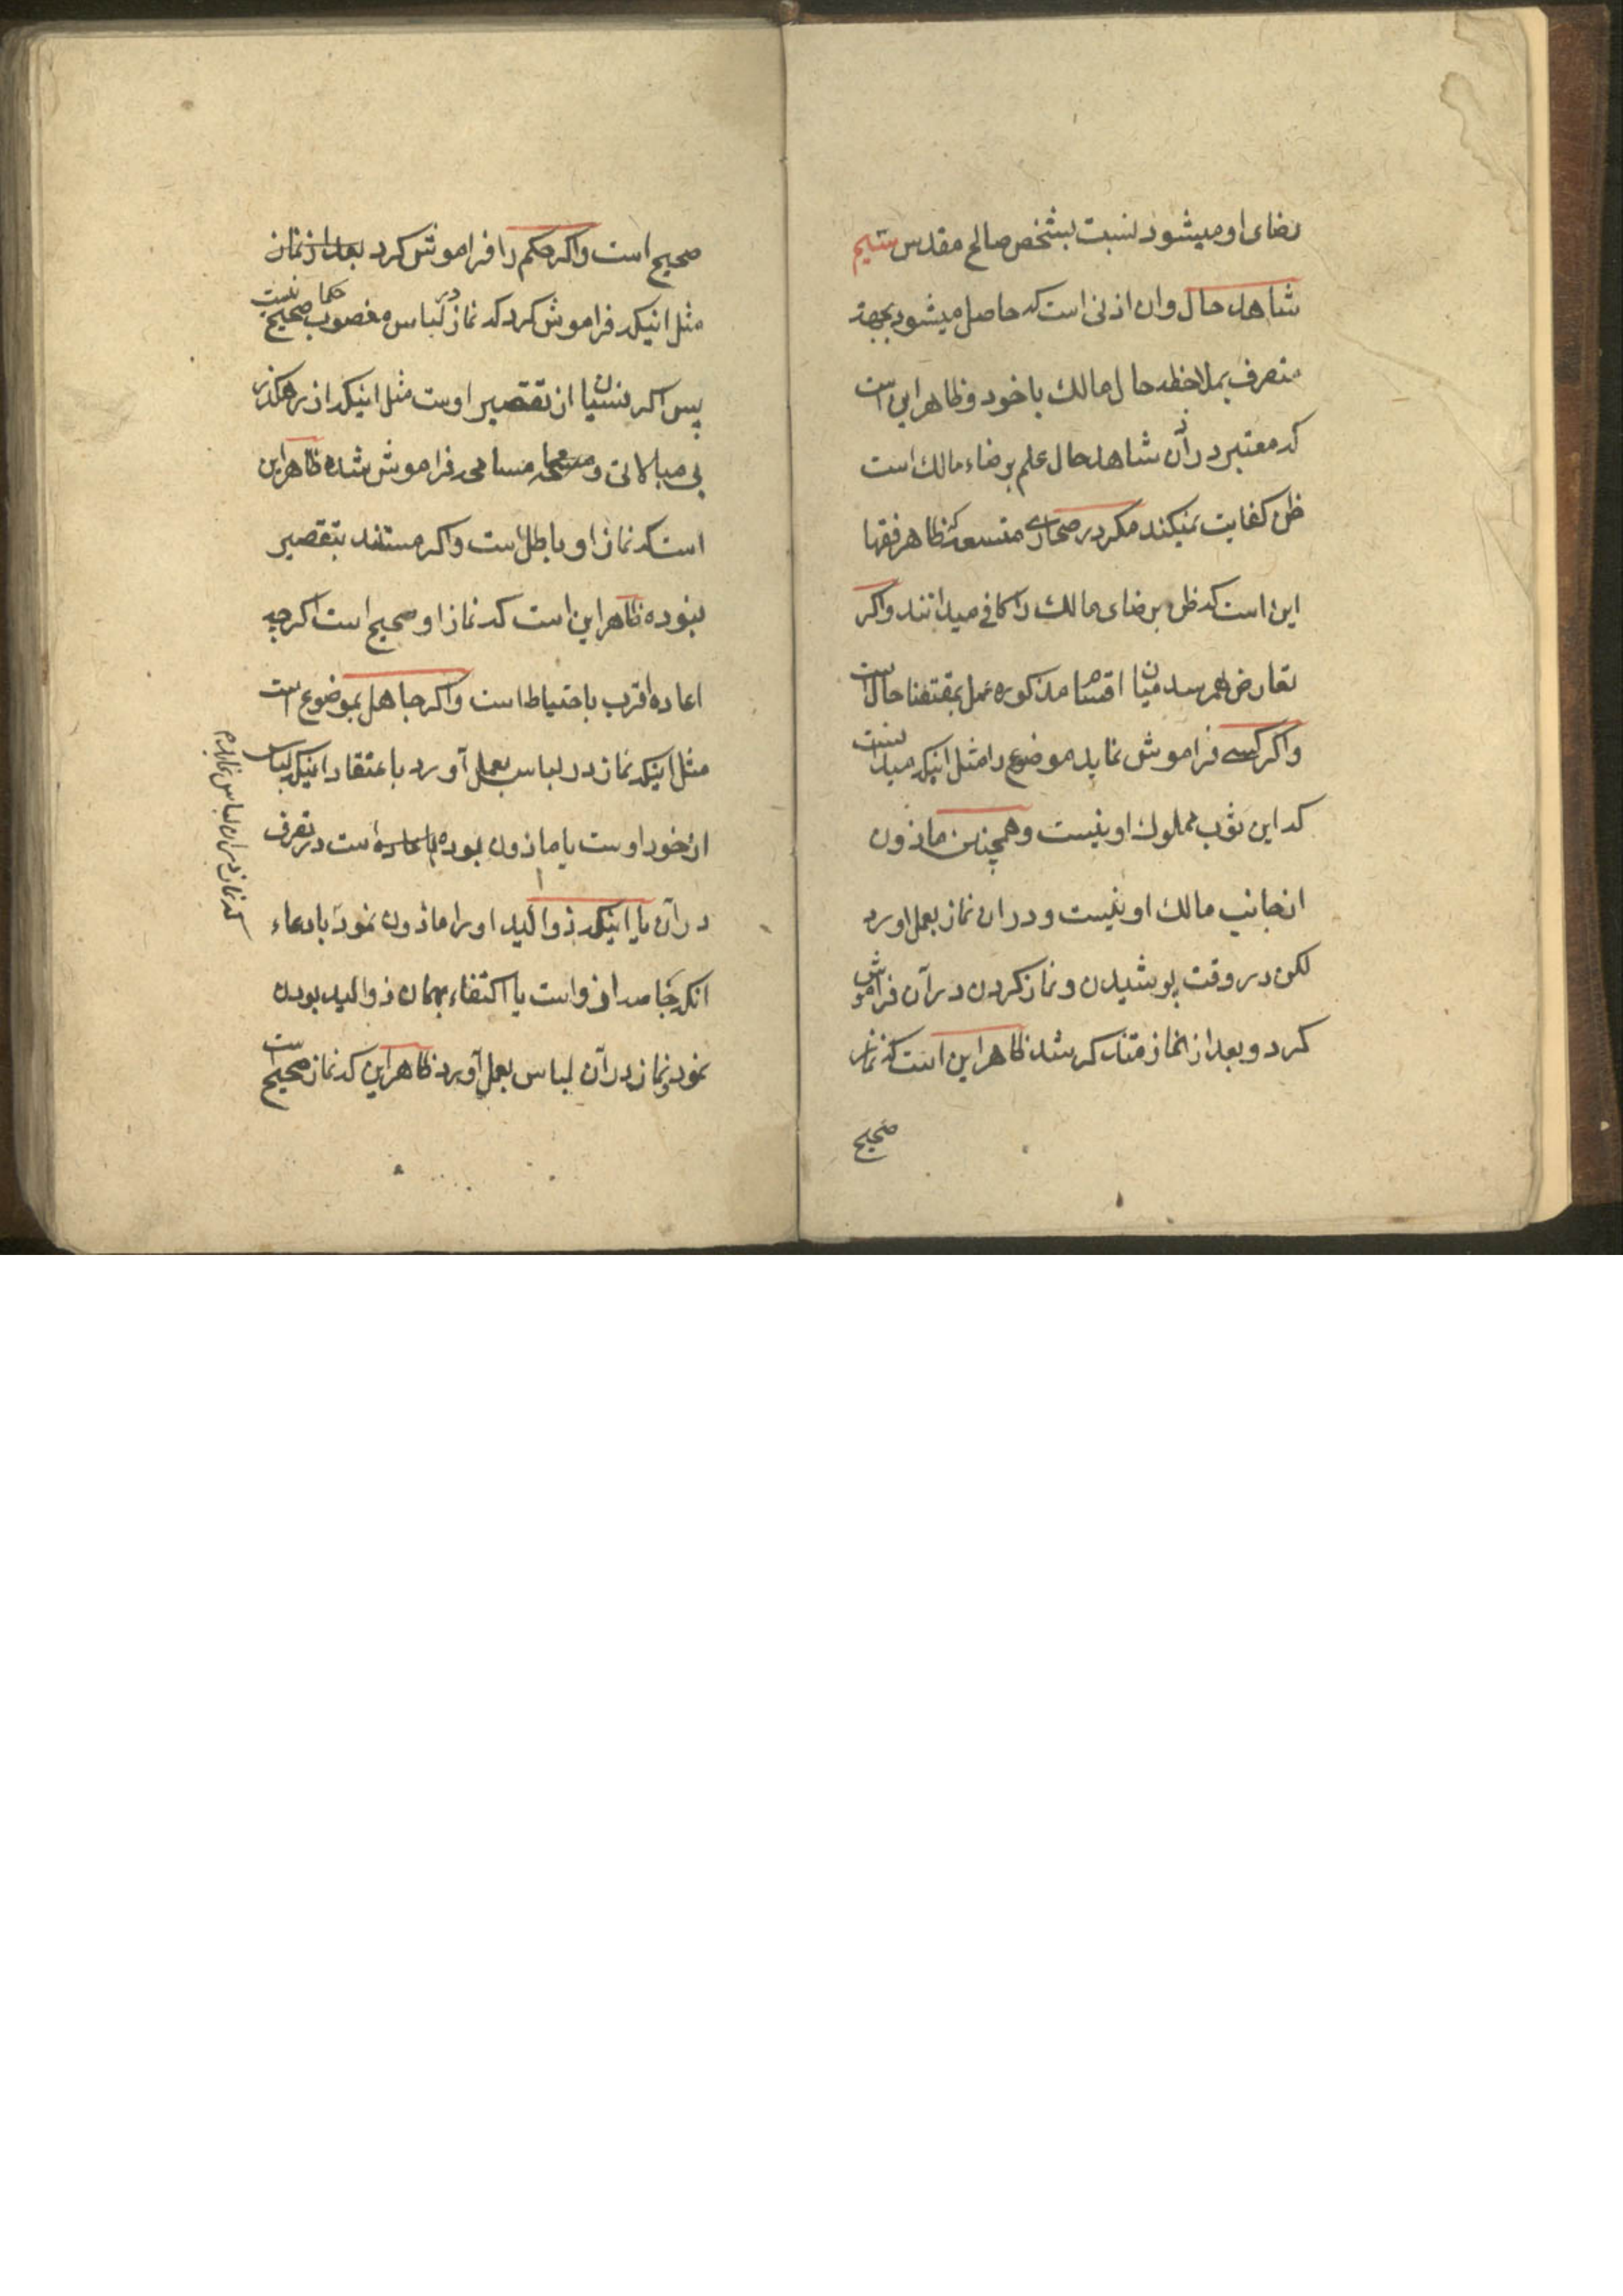 رضای او میشود نسبت بشخص صالح مقدس سیم
شاهد حال وان اذنی است که حاصل میشود بجهة
متصرف بملاحظه حال مالک با خود و ظاهر این است
که معتبر در آن شاهد حال علم برضاء مالک است
ظن کفایت نمیکند مکر در صحاری متسعه که ظاهر فقها
این است که ظن برضای مالک را کافی میدانند واکر
تعارض بهم رسد میان اقسام مذکوره عمل بمقتضا حال است
واکر کسی فراموش نماید موضوع را مثل اینکه میدانست
که این ثوب مملوک او نیست و همچنین ماذون
از جانب مالک او نیست و در ان نماز بعمل اورد
لکن در وقت پوشیدن و نماز کردن در آن فراموش
کرد و بعد از نماز متذکر شد ظاهر این است که نماز
صحیح
صحیح است واکر حکم را فراموش کرد بعد از نماز
مثل اینکه فراموش کرد که نماز در لباس مغصوب حکما صحیح نیست
پس اکر نسیان از تقصیر اوست مثل اینکه از رهکذر
بی مبالاتی و مسامحه فراموش شده ظاهر این
است که نماز او باطل است واکر مستند بتقصیر
نبوده ظاهر این است که نماز او صحیح است اکرچه
اعاده اقرب باحتیاط است واکر جاهل بموضوع است
مثل اینکه نماز در لباس بعمل آورد باعتقاد اینکه لباس
از خود اوست یا ماذون بوده است در تصرف
در آن یا اینکه ذوالید او را ماذون نمود با دعاء
انکه خاصه از و است یا اکتفاء بهمان ذوالید بودن
نمود و نماز در آن لباس بعمل آورد ظاهر این که نماز صحیح است
که نماز در ان لباس